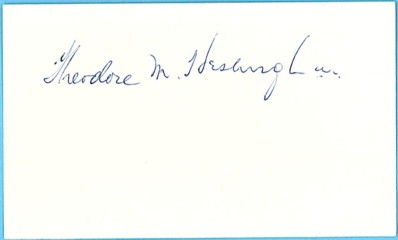 Theodore M. Hesburgh csc.